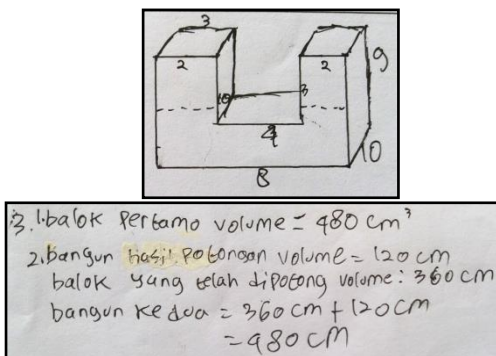 3
2
2
9
10
3
4
10
8
3. 1. balok Pertama volume = 480 cm³
2. bangun hasil Potongan volume = 120 cm
balok yang telah dipotong volume: 360 cm
bangun kedua = 360 cm + 120 cm
= 480 cm